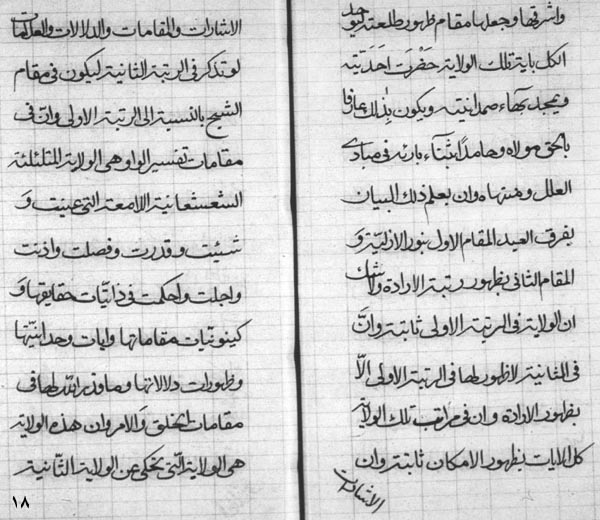 واشرقها وجعلها مقام ظهور طلعته ليوحد
الكل باية تلك الولاية حضرت احديته
ويمجد بهاء صمدانيته ويكون بذلك عارفا
بالحق مولاه وحامدا بثناء بارئه في مبادى
العلل ومنتهاه وان بعلم ذلك البيان
يفرق العبد المقام الاول بنور الازلية و
المقام الثاني بظهور رتبة الارادة ولاشك
ان الولاية في الرتبة الاولى ثابتة وانّ
في الثانية لاظهور لها في الرتبة الاولى الّا
بظهور الارادة وان في مراتب تلك الولاية
كل الايات بظهور الامكان ثابتة وان
الاشارات
الاشارات والمقامات والدلالات والعلامات
لو تذكر في الرتبة الثانية ليكون في مقام
الشبح بالنسبة الى الرتبة الاولى وانّ في
مقامات تفسير الواو هي الولاية المتلئلئة
الشعشعانية اللامعة التي عينت و
شيئت وقدرت وفصلت واذنت
واجلت واحكمت في ذاتيات حقايقها و
كينونيات مقاماتها وايات وحدانيتها
وظهورات دلالاتها وما قدر الله لها في
مقامات الخلق والامر وان هذه الولاية
هي الولاية التي تحكى عن الولاية الثانية
١٨